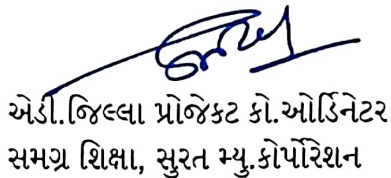 એડી.જિલ્લા પ્રોજેકટ કો.ઓર્ડિનેટર
સમગ્ર શિક્ષા, સુરત મ્યુ.કોર્પોરેશન